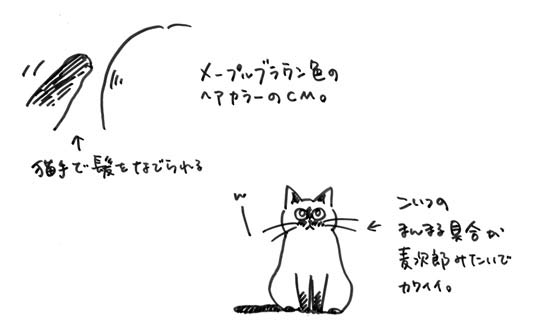 メープルブラウン色の
ヘアカラーのCM。
猫手で髪をなでられる
こいつの
まんまる具合が
麦次郎みたいで
カワイイ。